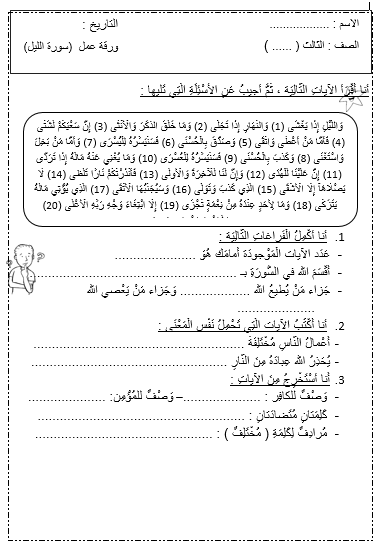 الاسم : .................. التاريخ :
الصف : الثالث ( ...... ) ورقة عمل (سورة الليل)
أنا أَقْرَأُ الآيات التّالِيَة ، ثُمَّ أُجيبُ عَنِ الأَسْئِلَةِ الَّتِي تَليها :
وَاللَّيْلِ إِذَا يَغْشَى (1) وَالنَّهَارِ إِذَا تَجَلَّى (2) وَمَا خَلَقَ الذَّكَرَ وَالْأُنْثَى (3) إِنَّ سَعْيَكُمْ لَشَتَّى
(4) فَأَمَّا مَنْ أَعْطَى وَاتَّقَى (5) وَصَدَّقَ بِالْحُسْنَى (6) فَسَنُيَسِّرُهُ لِلْيُسْرَى (7) وَأَمَّا مَنْ بَخِلَ
وَاسْتَغْنَى (8) وَكَذَّبَ بِالْحُسْنَى (9) فَسَنُيَسِّرُهُ لِلْعُسْرَى (10) وَمَا يُغْنِي عَنْهُ مَالُهُ إِذَا تَرَدَّى
(11) إِنَّ عَلَيْنَا لَلْهُدَى (12) وَإِنَّ لَنَا لَلْآخِرَةَ وَالْأُولَى (13) فَأَنْذَرْتُكُمْ نَارًا تَلَظَّى (14) لَا
يَصْلَاهَا إِلَّا الْأَشْقَى (15) الَّذِي كَذَّبَ وَتَوَلَّى (16) وَسَيُجَنَّبُهَا الْأَتْقَى (17) الَّذِي يُؤْتِي مَالَهُ
يَتَزَكَّى (18) وَمَا لِأَحَدٍ عِنْدَهُ مِنْ نِعْمَةٍ تُجْزَى (19) إِلَّا ابْتِغَاءَ وَجْهِ رَبِّهِ الْأَعْلَى (20)
1. أنا أُكْمِلُ الْفَراغاتِ التّالِيَةَ :
- عَدَد الآيات الْمَوْجودَة أمامَك هُوَ ......................
- أَقْسَمَ الله في السّورَةِ بـ ......................................
- جَزاء مَنْ يُطيعُ الله .................. وَجَزاء مَنْ يَعْصي الله
....................
2. أنا أَكْتُبُ الآيات الَّتِي تَحْمِلُ نَفْسَ الْمَعْنَى :
- أَعْمالُ النّاسِ مُخْتَلِفَة ......................................
- يُحَذِّرُ الله عِبادَهُ مِنَ النّارِ ......................................
3. أنا أَسْتَخْرِجُ مِنَ الآياتِ :
- وَصْفٌ لِلْكافِر : .................. – وَصْفٌ للمُؤْمِن: ..................
- كَلِمَتانِ مُتَضادَتانِ : ......................................
- مُرادِفٌ لِكَلِمَةِ ( مُخْتَلِفٌ ) : ......................................